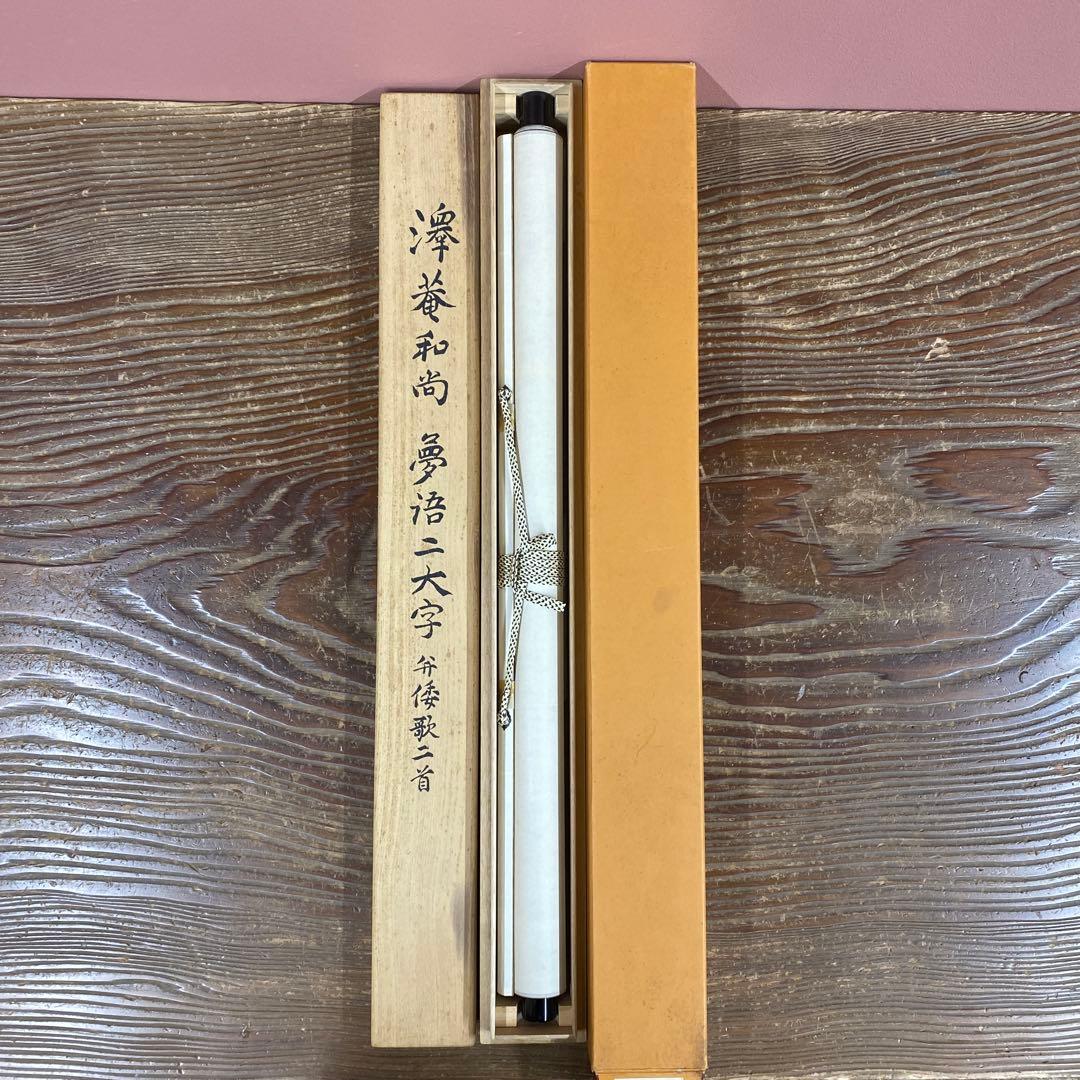 澤菴和尚 夢語二大字 并倭歌二首